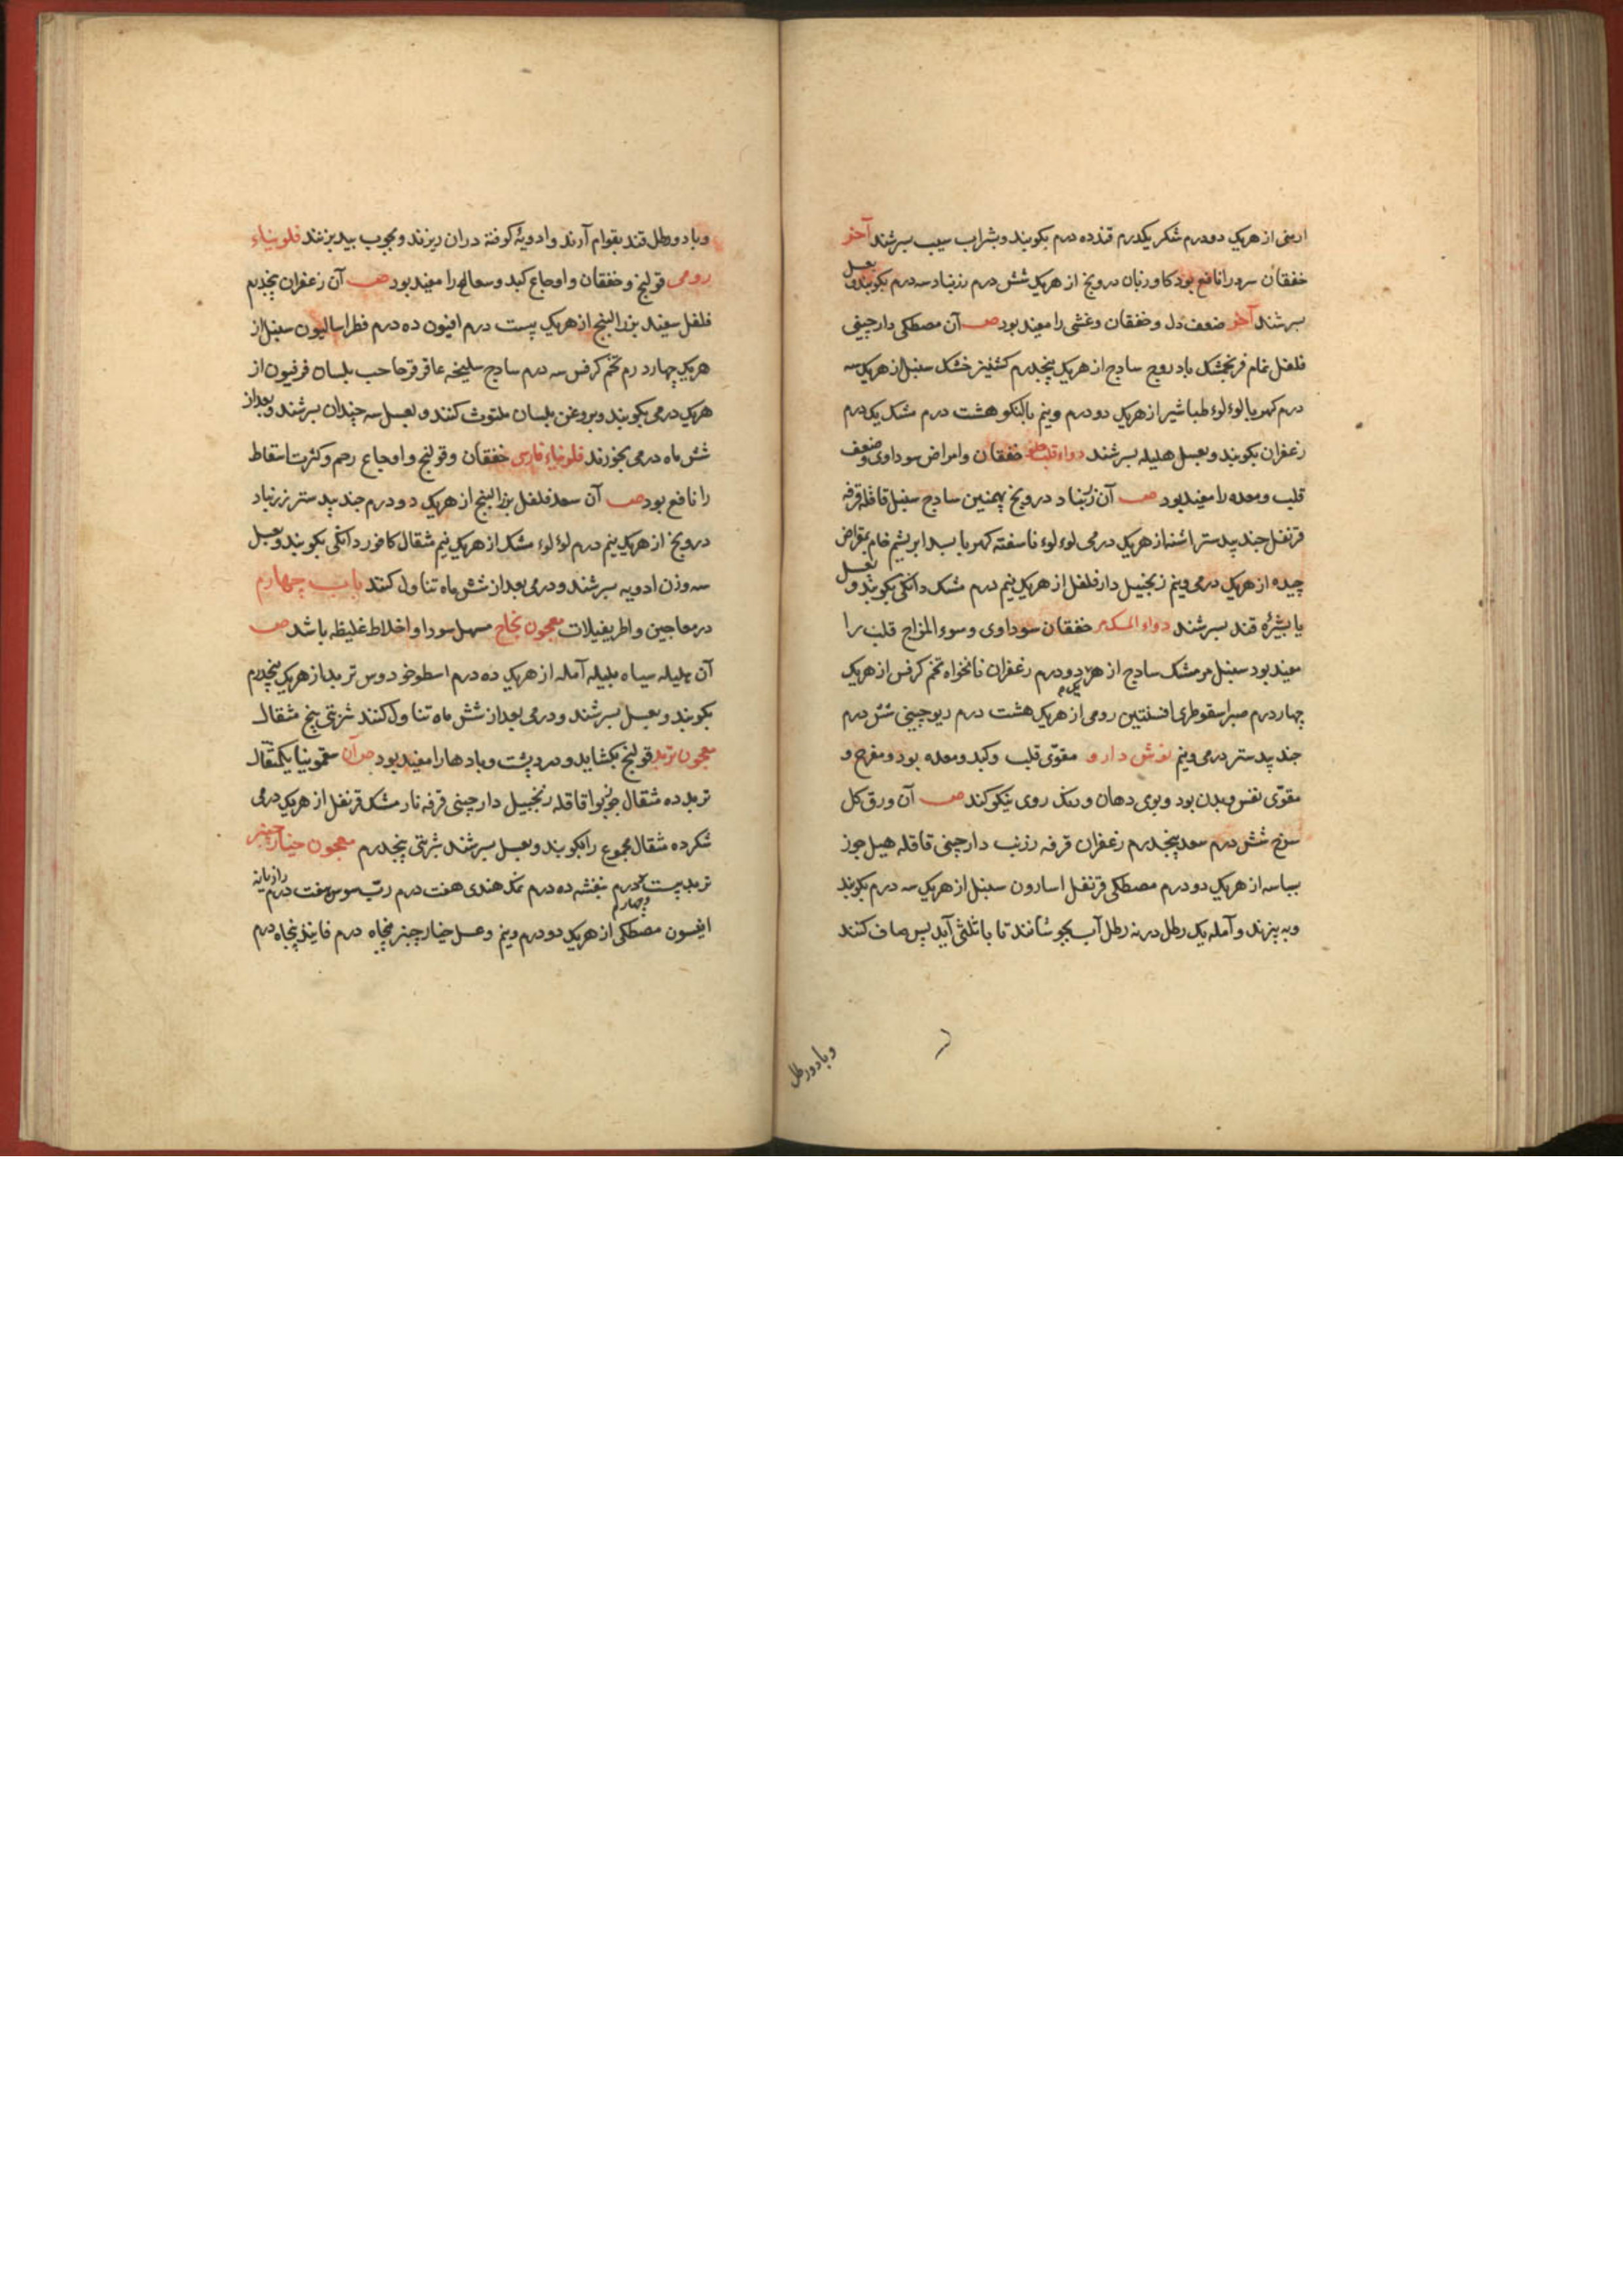 ارمنی از هریک دو درم شکر یکدرم قند ده درم بکوبند و بشراب سیب بسرشند آخر
خفقان سرد را نافع بود کاوزبان درونج از هریک شش درم زرنباد سه درم بکوبند و بعسل
بسرشند آخر ضعف دل و خفقان و غشی را مفید بود صـ آن مصطکی دارچینی
فلفل نمام فرنجمشک بادروج سادج از هریک پنجدرم کشنیز خشک سنبل از هریک سه
درم کهربا لوءلوء طباشیر از هریک دو درم و نیم بالنکو هشت درم مشک یک درم
زعفران بکوبند و بعسل هلیله بسرشند دواء قلب خفقان و امراض سوداوی و ضعف
قلب و معده را مفید بود صـ آن زرنباد درونج بهمنین سادج سنبل قاقله قرفه
قرنفل جندبیدستر اشنه از هریک درمی لوءلوء ناسفته کهربا بسد ابریشم خام بمقراض
چیده از هریک درمی و نیم زنجبیل دارفلفل از هریک نیم درم مشک دانکی بکوبند و بعسل
یا بشیره قند بسرشند دواء المسک مر خفقان سوداوی و سوء المزاج قلب را
مفید بود سنبل مر مشک سادج از هر یک دو درم زعفران نانخواه تخم کرفس از هریک
چهار درم صبر اسقوطری افسنتین رومی از هریک هشت درم ریوچینی شش درم
جندبیدستر درمی و نیم نوش دارو مقوّی قلب و کبد و معده بود و مفرح و
مقوّی نفس و بدن بود و بوی دهان و رنک روی نیکو کند صـ آن ورق کل
سرخ شش درم سعد پنجدرم زعفران قرفه زرنب دارچینی قاقله هیل جوز
بسباسه از هریک دو درم مصطکی قرنفل اسارون سنبل از هریک سه درم بکوبند
و بپزند و آمله یک رطل در نه رطل آب بجوشانند تا با ثلثی آید پس صاف کنند
و با دو رطل
و با دو رطل قند بقوام آرند و ادویهٔ کوفته در ان ریزند و بچوب بید بزنند فلونیاء
رومی قولنج و خفقان و اوجاع کبد و سعال را مفید بود صـ آن زعفران پنجدرم
فلفل سفید بزرالبنج از هریک بیست درم افیون ده درم فطراسالیون سنبل از
هریک چهار درم تخم کرفس سه درم سادج سلیخه عاقرقرحا حب بلسان فرفیون از
هریک درمی بکوبند و بروغن بلسان ملتوت کنند و بعسل سه چندان بسرشند و بعد از
شش ماه درمی بخورند فلونیاء فارسی خفقان و قولنج و اوجاع رحم و کثرت اسقاط
را نافع بود صـ آن سعد فلفل بزرالبنج از هریک دو درم جندبیدستر زرنباد
درونج از هریک نیم درم لوءلوء مشک از هریک نیم مثقال کافور دانکی بکوبند و بعسل
سه وزن ادویه بسرشند و درمی بعد از شش ماه تناول کنند باب چهارم
در معاجین و اطریفیلات معجون نجاح مسهل سودا و اخلاط غلیظه باشد صـ
آن هلیله سیاه بلیله آمله از هریک ده درم اسطوخودوس تربد از هریک پنجدرم
بکوبند و بعسل بسرشند و درمی بعد از شش ماه تناول کنند شربتی پنج مثقال
معجون تربد قولنج بکشاید و درد پشت و بادها را مفید بود صـ آن سقمونیا یکمثقال
تربد ده مثقال جوزبوا قاقله زنجبیل دارچینی قرفه نارمشک قرنفل از هریک درمی
شکر ده مثقال مجموع را بکوبند و بعسل بسرشند شربتی پنجدرم معجون خیارچنبر
تربد بیست و چهار درم بنفشه ده درم نمک هندی هفت درم ربّ سوس هفت درم رازیانه
انیسون مصطکی از هریک دو درم و نیم و عسل خیارچنبر پنجاه درم فانیذ پنجاه درم